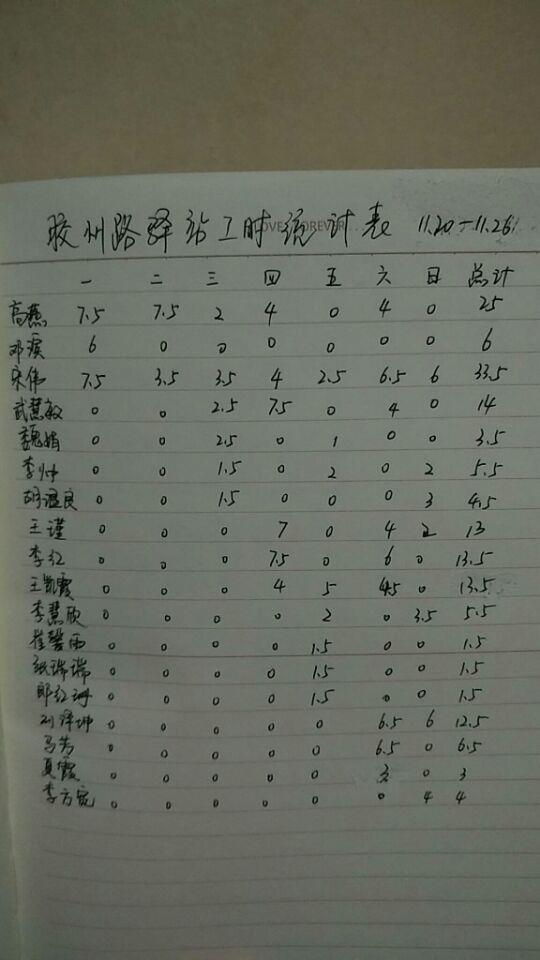 胶州路驿站工时统计表 11.20-11.26
LOVE FOREVER...
一 二 三 四 五 六 日 总计
高燕 7.5 7.5 2 4 0 4 0 25
邓 6 0 0 0 0 0 0 6
宋伟 7.5 3.5 3.5 4 2.5 6.5 6 33.5
武慧敏 0 0 2.5 7.5 0 4 0 14
魏娟 0 0 2.5 0 1 0 0 3.5
李帅 0 0 1.5 0 2 0 2 5.5
胡温良 0 0 1.5 0 0 0 3 4.5
王瑾 0 0 0 7 0 4 2 13
李红 0 0 0 7.5 0 6 0 13.5
王凯霞 0 0 0 4 5 4.5 0 13.5
李慧欣 0 0 0 0 2 0 3.5 5.5
崔馨雨 0 0 0 0 1.5 0 0 1.5
纸瑞瑞 0 0 0 0 1.5 0 0 1.5
郎红 0 0 0 0 1.5 0 0 1.5
刘泽坤 0 0 0 0 0 6.5 6 12.5
马芳 0 0 0 0 0 6.5 0 6.5
夏霞 0 0 0 0 0 3 0 3
李方 0 0 0 0 0 0 4 4